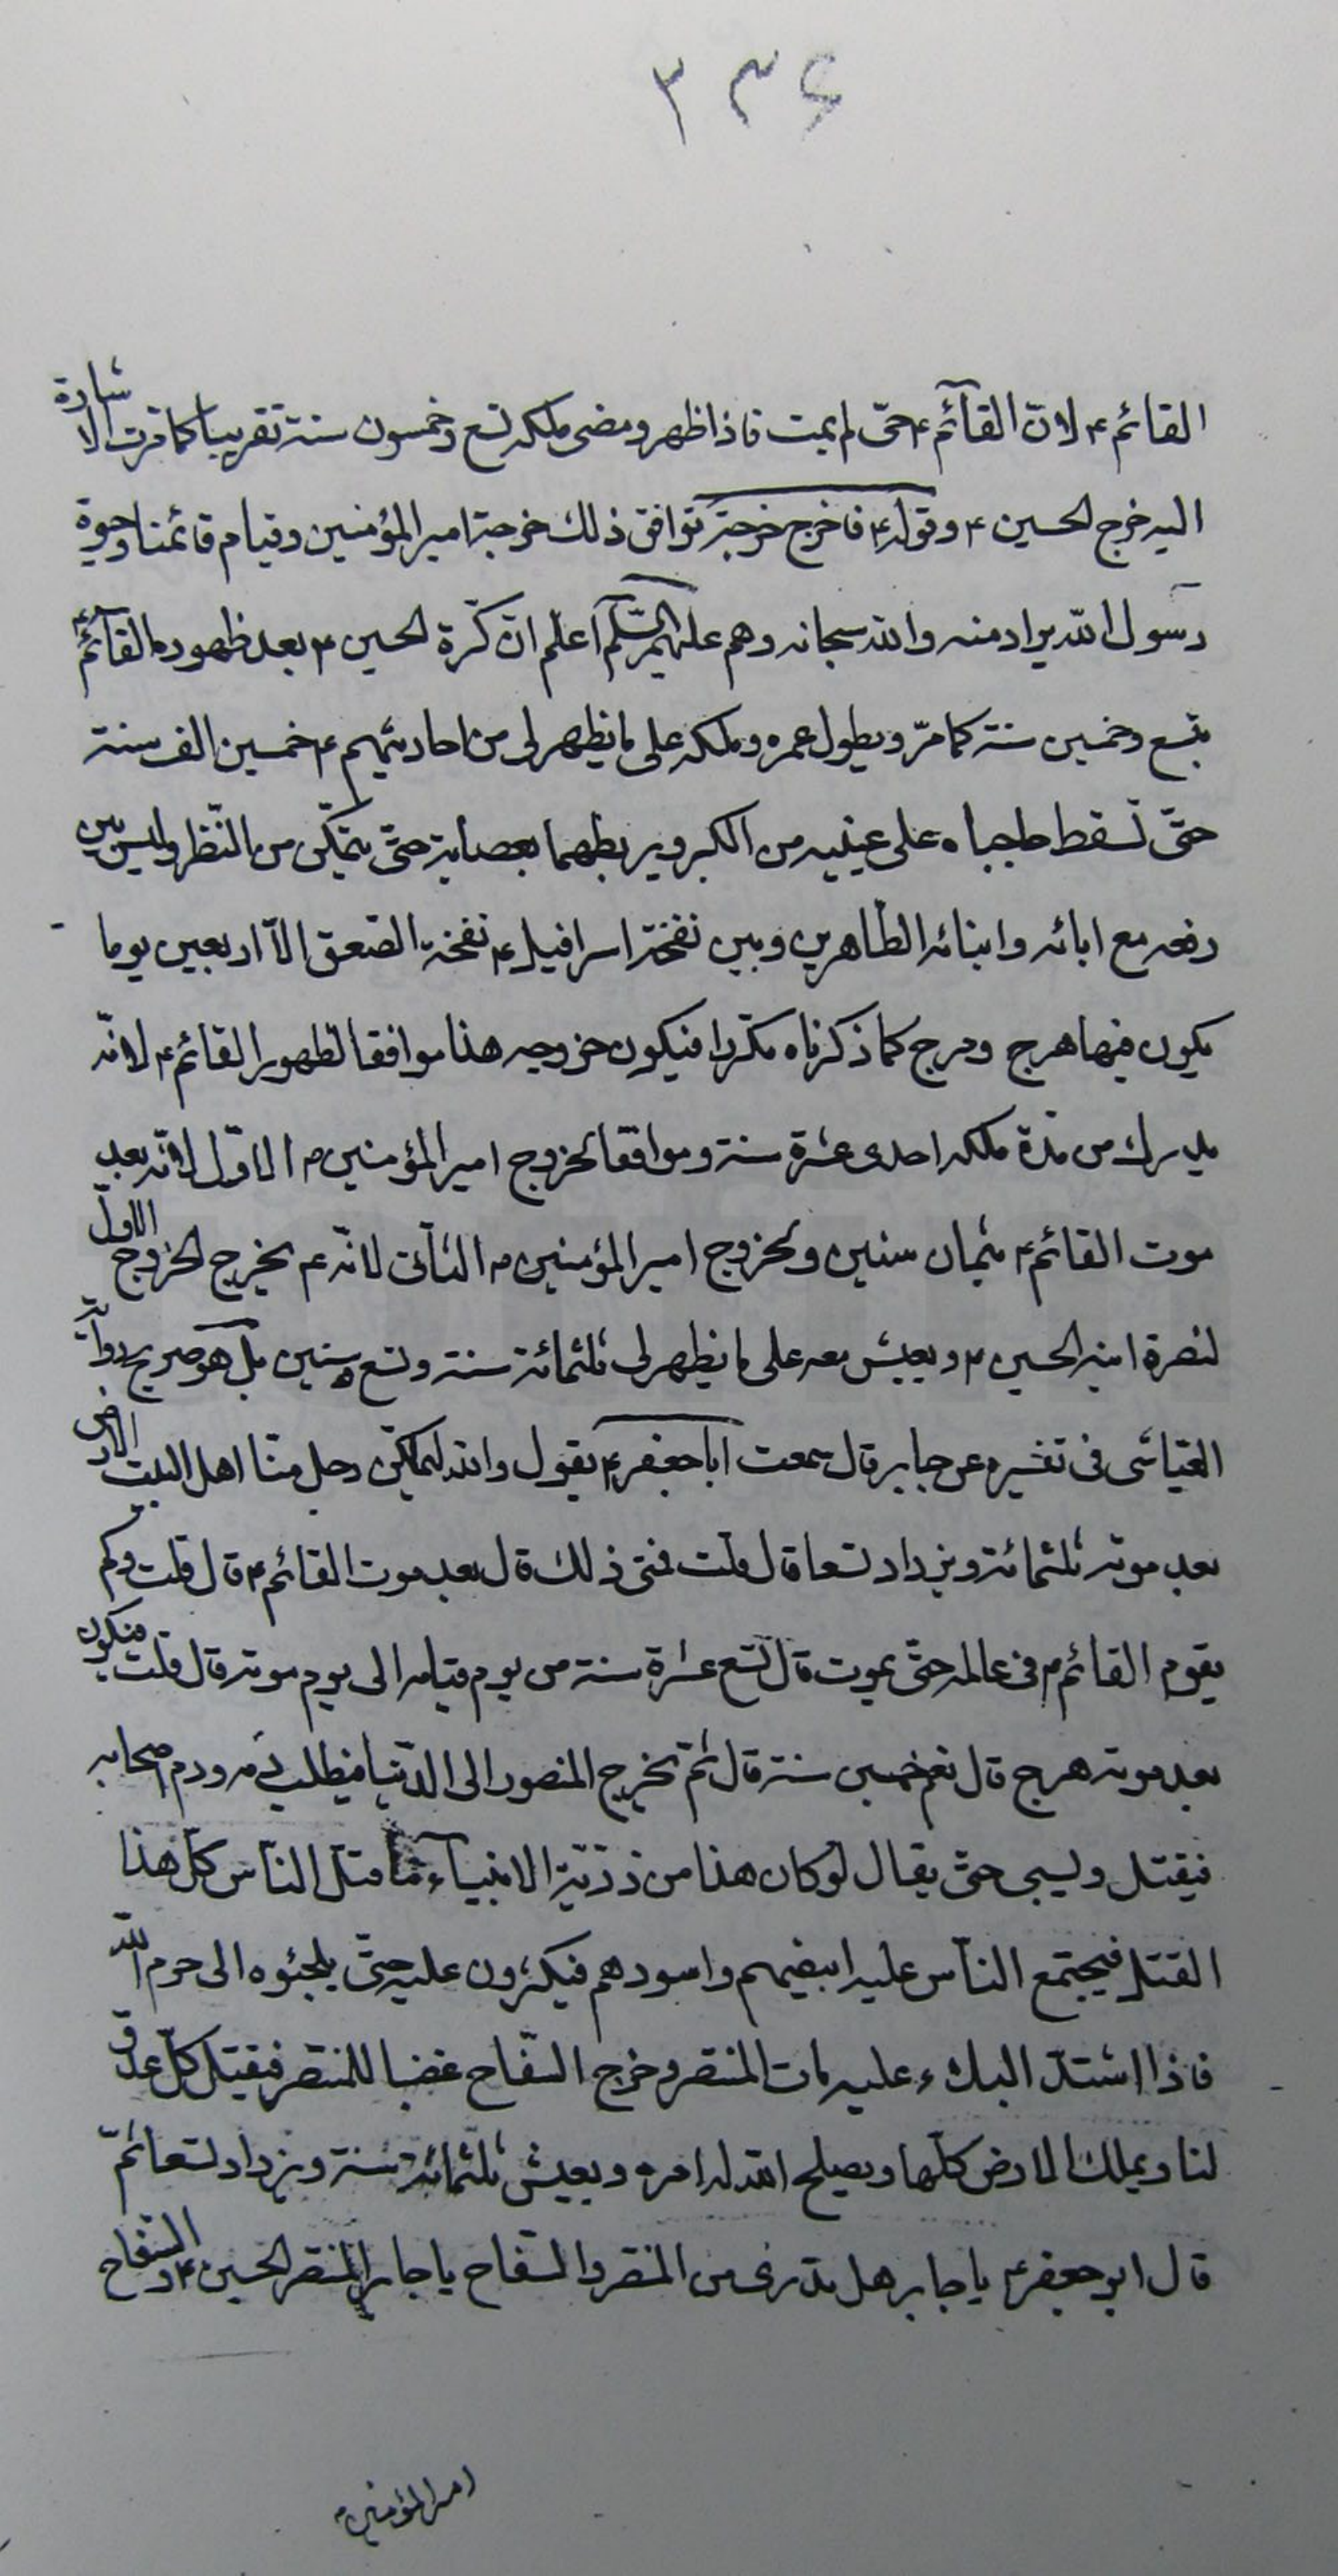 ٣٣۶
القائم ء لانّ القآئم ء حىّ لم يمت فاذا ظهر ومضى ملكه تسع وخمسون سنة تقريبا كما مرت الاشارة
اليه خرج الحسين ء وقوله ء فاخرج خرجة توافق ذلك خرجة امير المؤمنين وقيام قائمنا وحيوة
رسول الله يراد منه والله سبحانه وهم عليهم السّلم اعلم انّ كرّة الحسين ء بعد ظهور القآئم ء
بتسع وخمسين سنة كما مرّ ويطول عمره وملكه على ما يظهر لى من احاديثهم ء خمسين الف سنة
حتّى تسقط حاجباه على عينيه من الكبر ويربطهما بعصابة حتّى يتمكّن من النّظر وليس بين
رفعه مع ابائه وابنائه الطّاهرين وبين نفخة اسرافيل ء نفخة الصّعق الاّ اربعين يوما
يكون فيها هرج ومرج كما ذكرناه مكرّرا فيكون خروجه هذا موافقا لظهور القائم ء لانّه
يدرك من مدّة ملكه احدى عشرة سنة وموافقا لخروج امير المؤمنين ء الاوّل لانّه بعد
موت القائم ء بثمان سنين ولخروج امير المؤمنين ء الثّانى لانّه ء يخرج الخروج الاول
لنصرة ابنه الحسين ء ويعيش معه على ما يظهر لى ثلثمائة سنة وتسع سنين بل هو صريح رواية
العيّاشى فى تفسيره عن جابر قال سمعت ابا جعفر ء يقول والله ليملكنّ رجل منّا اهل البيت الارض
بعد موته ثلثمائة ويزداد تسعا قال قلت فمتى ذلك قال بعد موت القائم ء قال قلت وكم
يقوم القائم ء فى عالمه حتّى يموت قال تسع عشرة سنة من يوم قيامه الى يوم موته قال قلت فيكون
بعد موته هرج قال نعم خمسين سنة قال ثمّ يخرج المنصور الى الدّنيا فيطلب دمه ودم اصحابه
فيقتل ويسبى حتّى يقال لو كان هذا من ذرّيّة الانبيآء ما قتل النّاس كلّ هذا
القتل فيجتمع النّاس عليه ابيضهم واسودهم فيكثرون عليه حتّى يلجئوه الى حرم الله
فاذا اشتدّ البلاء عليه مات المنتصر وخرج السّفّاح غضبا للمنتصر فيقتل كلّ عدوّ
لنا ويملك الارض كلّها ويصلح الله له امره ويعيش ثلثمائة سنة ويزداد تسعا ثمّ
قال ابو جعفر ء يا جابر هل تدرى من المنتصر والسّفاح يا جابر المنتصر الحسين ء والسّفاح
امير المؤمنين ء